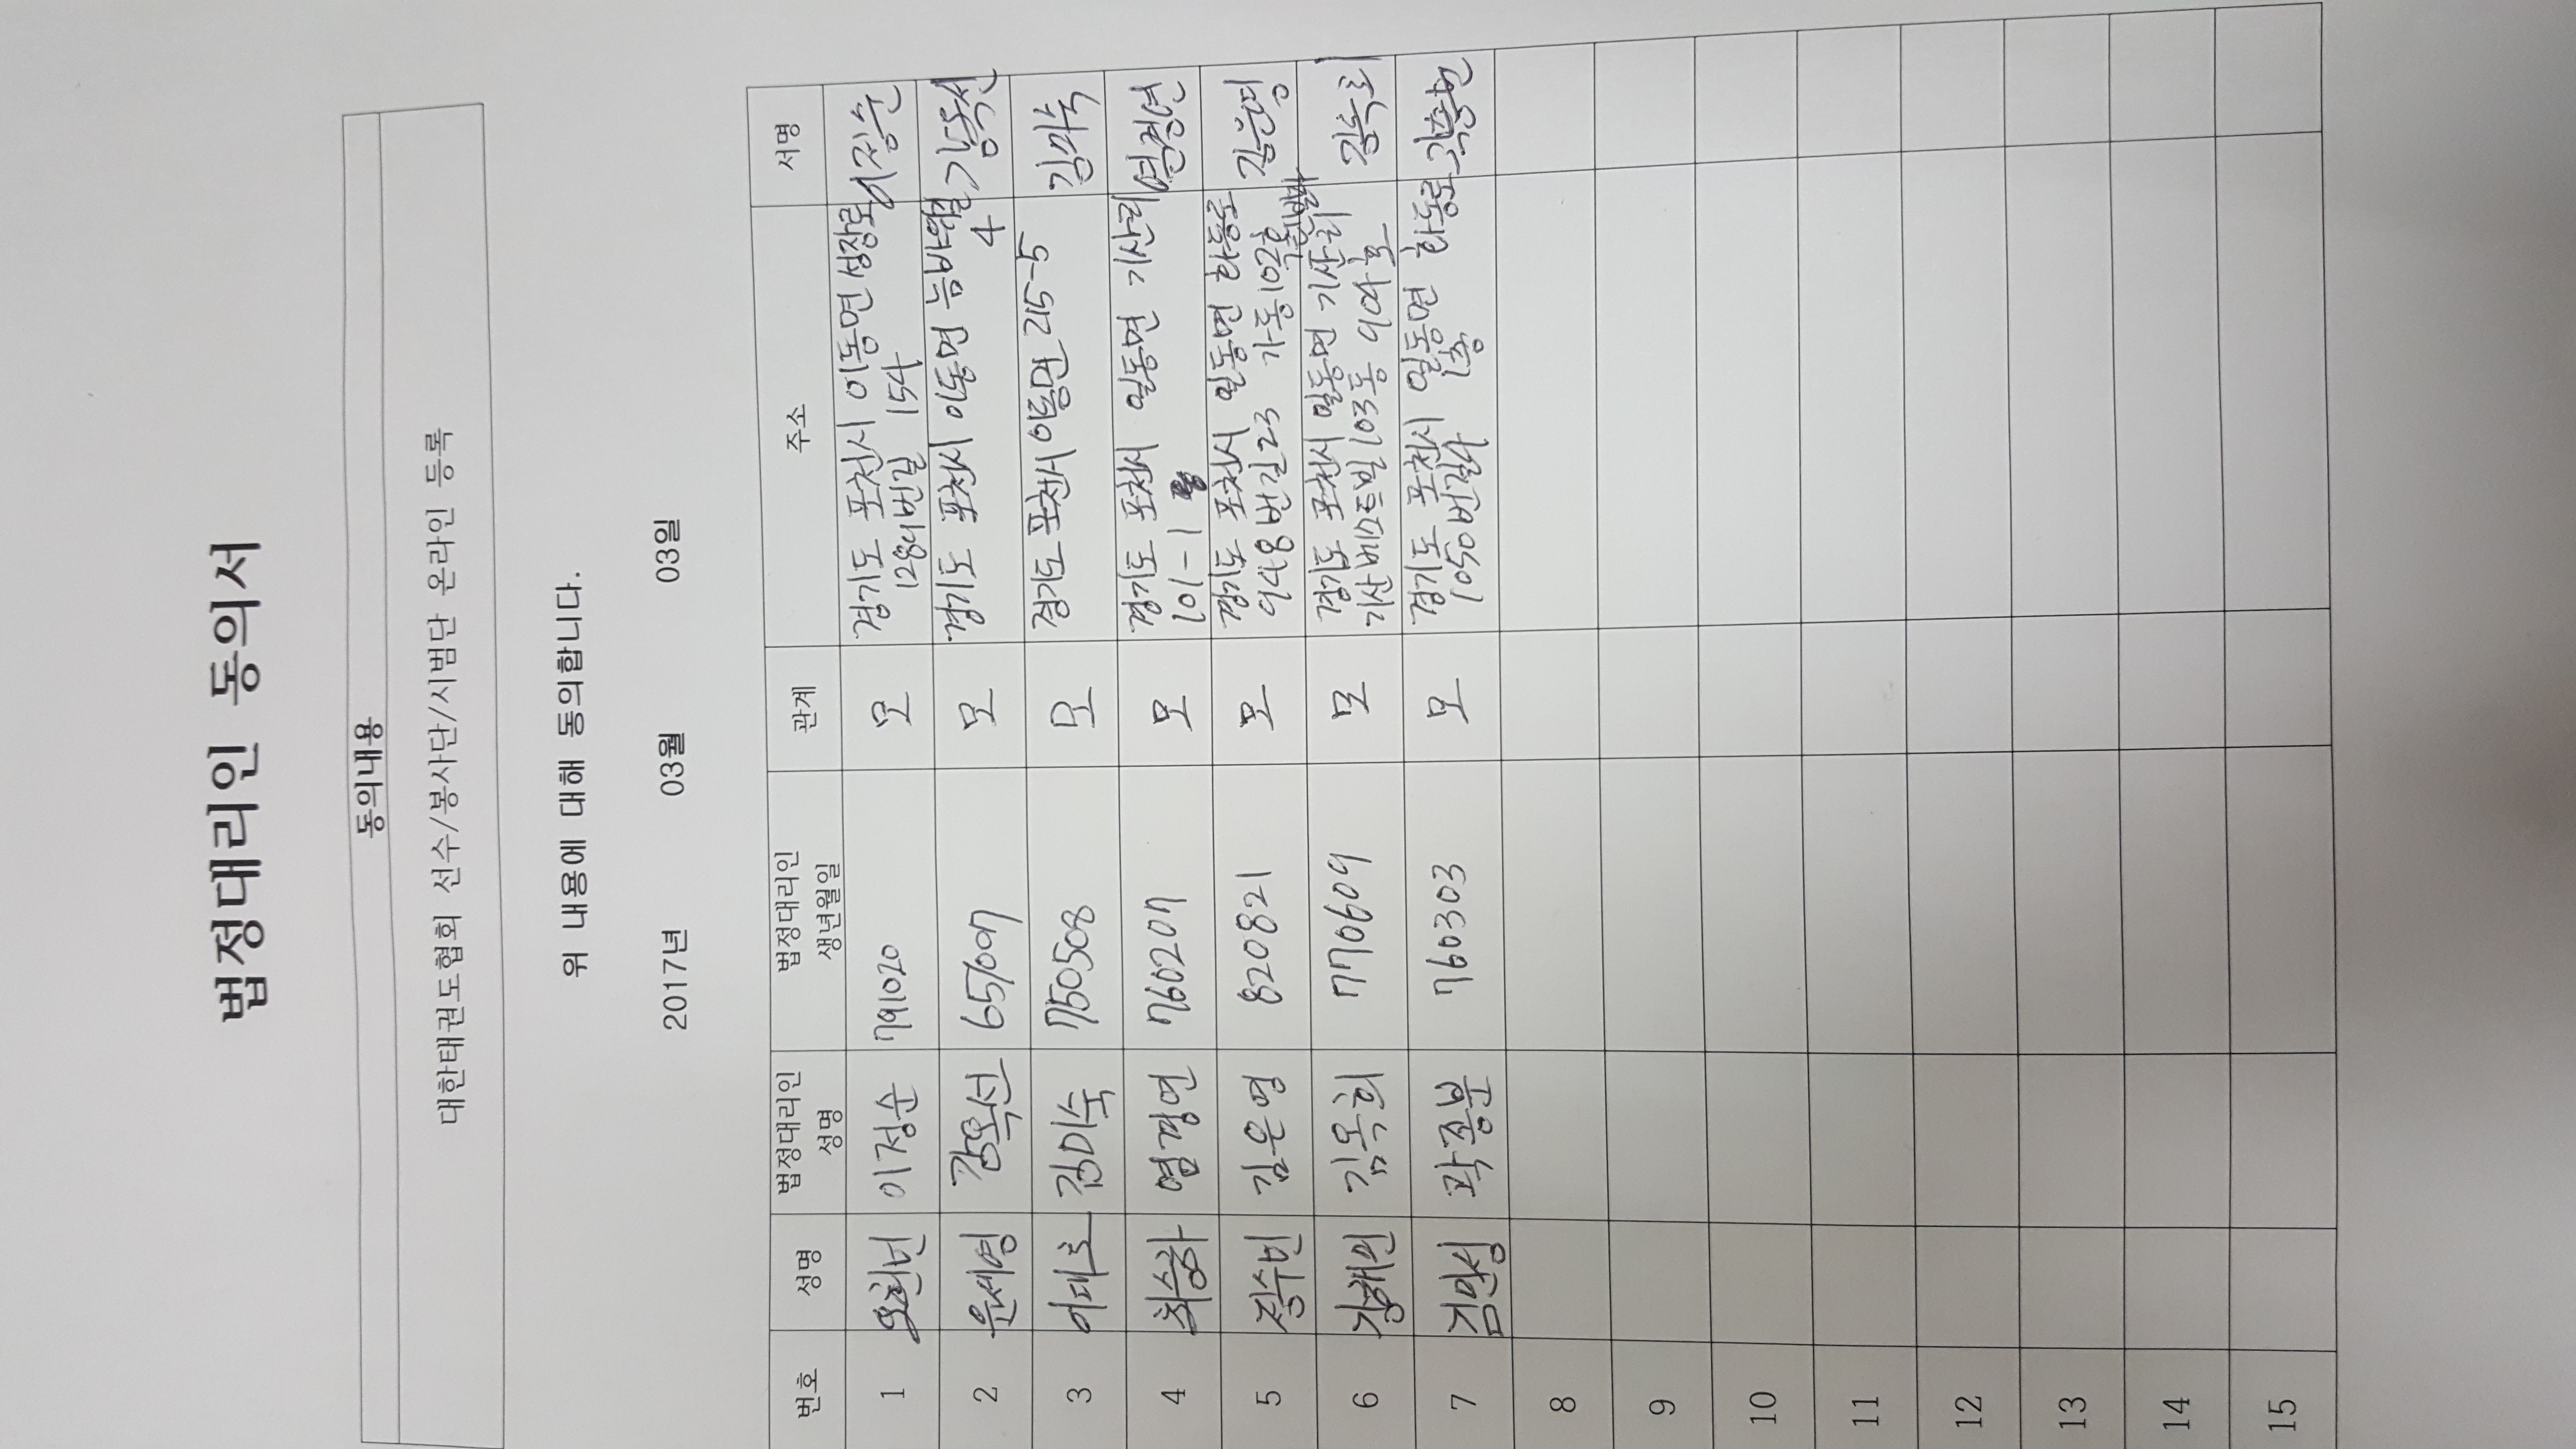 법정대리인 동의서
동의내용
대한태권도협회 선수/봉사단/시범단 온라인 등록
위 내용에 대해 동의합니다.
2017년 03월 03일
번호 성명 법정대리인 성명 법정대리인 생년월일 관계 주소 서명
1 이정순 791020 모 경기도 포천시 이동면 성장로 이정순
1284번길 154
2 윤세영 강옥선 651007 모 경기도 포천시 이동면 강옥선
4
3 이대호 김미숙 750508 모 경기도 포천시 이동면 215-5 김미숙
4 최승하 염경연 760207 모 경기도 포천시 일동면 기산리 염경연
101-1
5 정수빈 김은영 820821 모 경기도 포천시 일동면 화동로 김은영
948번길 23 가동 102호
6 김옥희 770609 모 경기도 포천시 일동면 기산리 김옥희
기산베스트빌 103동 904호
7 김민성 곽종분 760303 모 경기도 포천시 일동면 화동로 곽종분
1050번길 1층
8
9
10
11
12
13
14
15